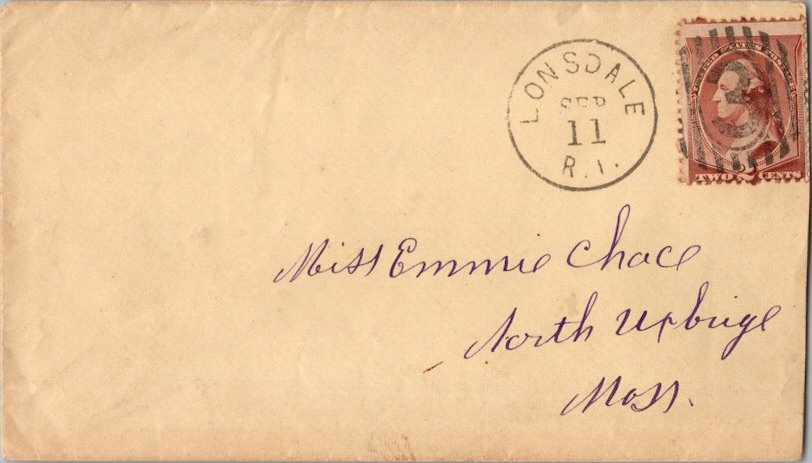 LONSDALE
SEP
11
R.I.
UNITED STATES POSTAGE
TWO 2 CENTS
Miss Emmie Chace
North Uxbrige
Mass.